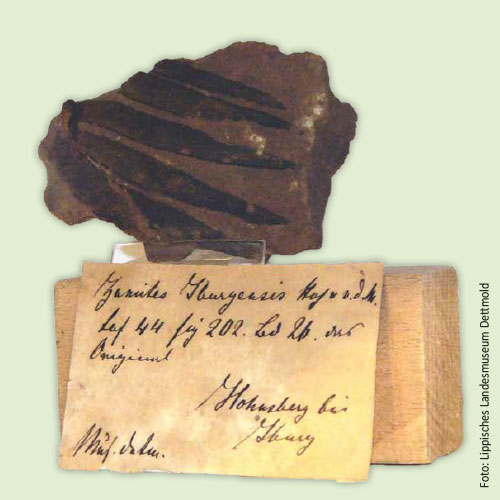 Zamites Iburgensis Hos u. v. d. M.
taf 44 fig 202. Bd 26. das
Original
Hohnsberg bei
Iburg
Mus. detm.
Foto: Lippisches Landesmuseum Detmold